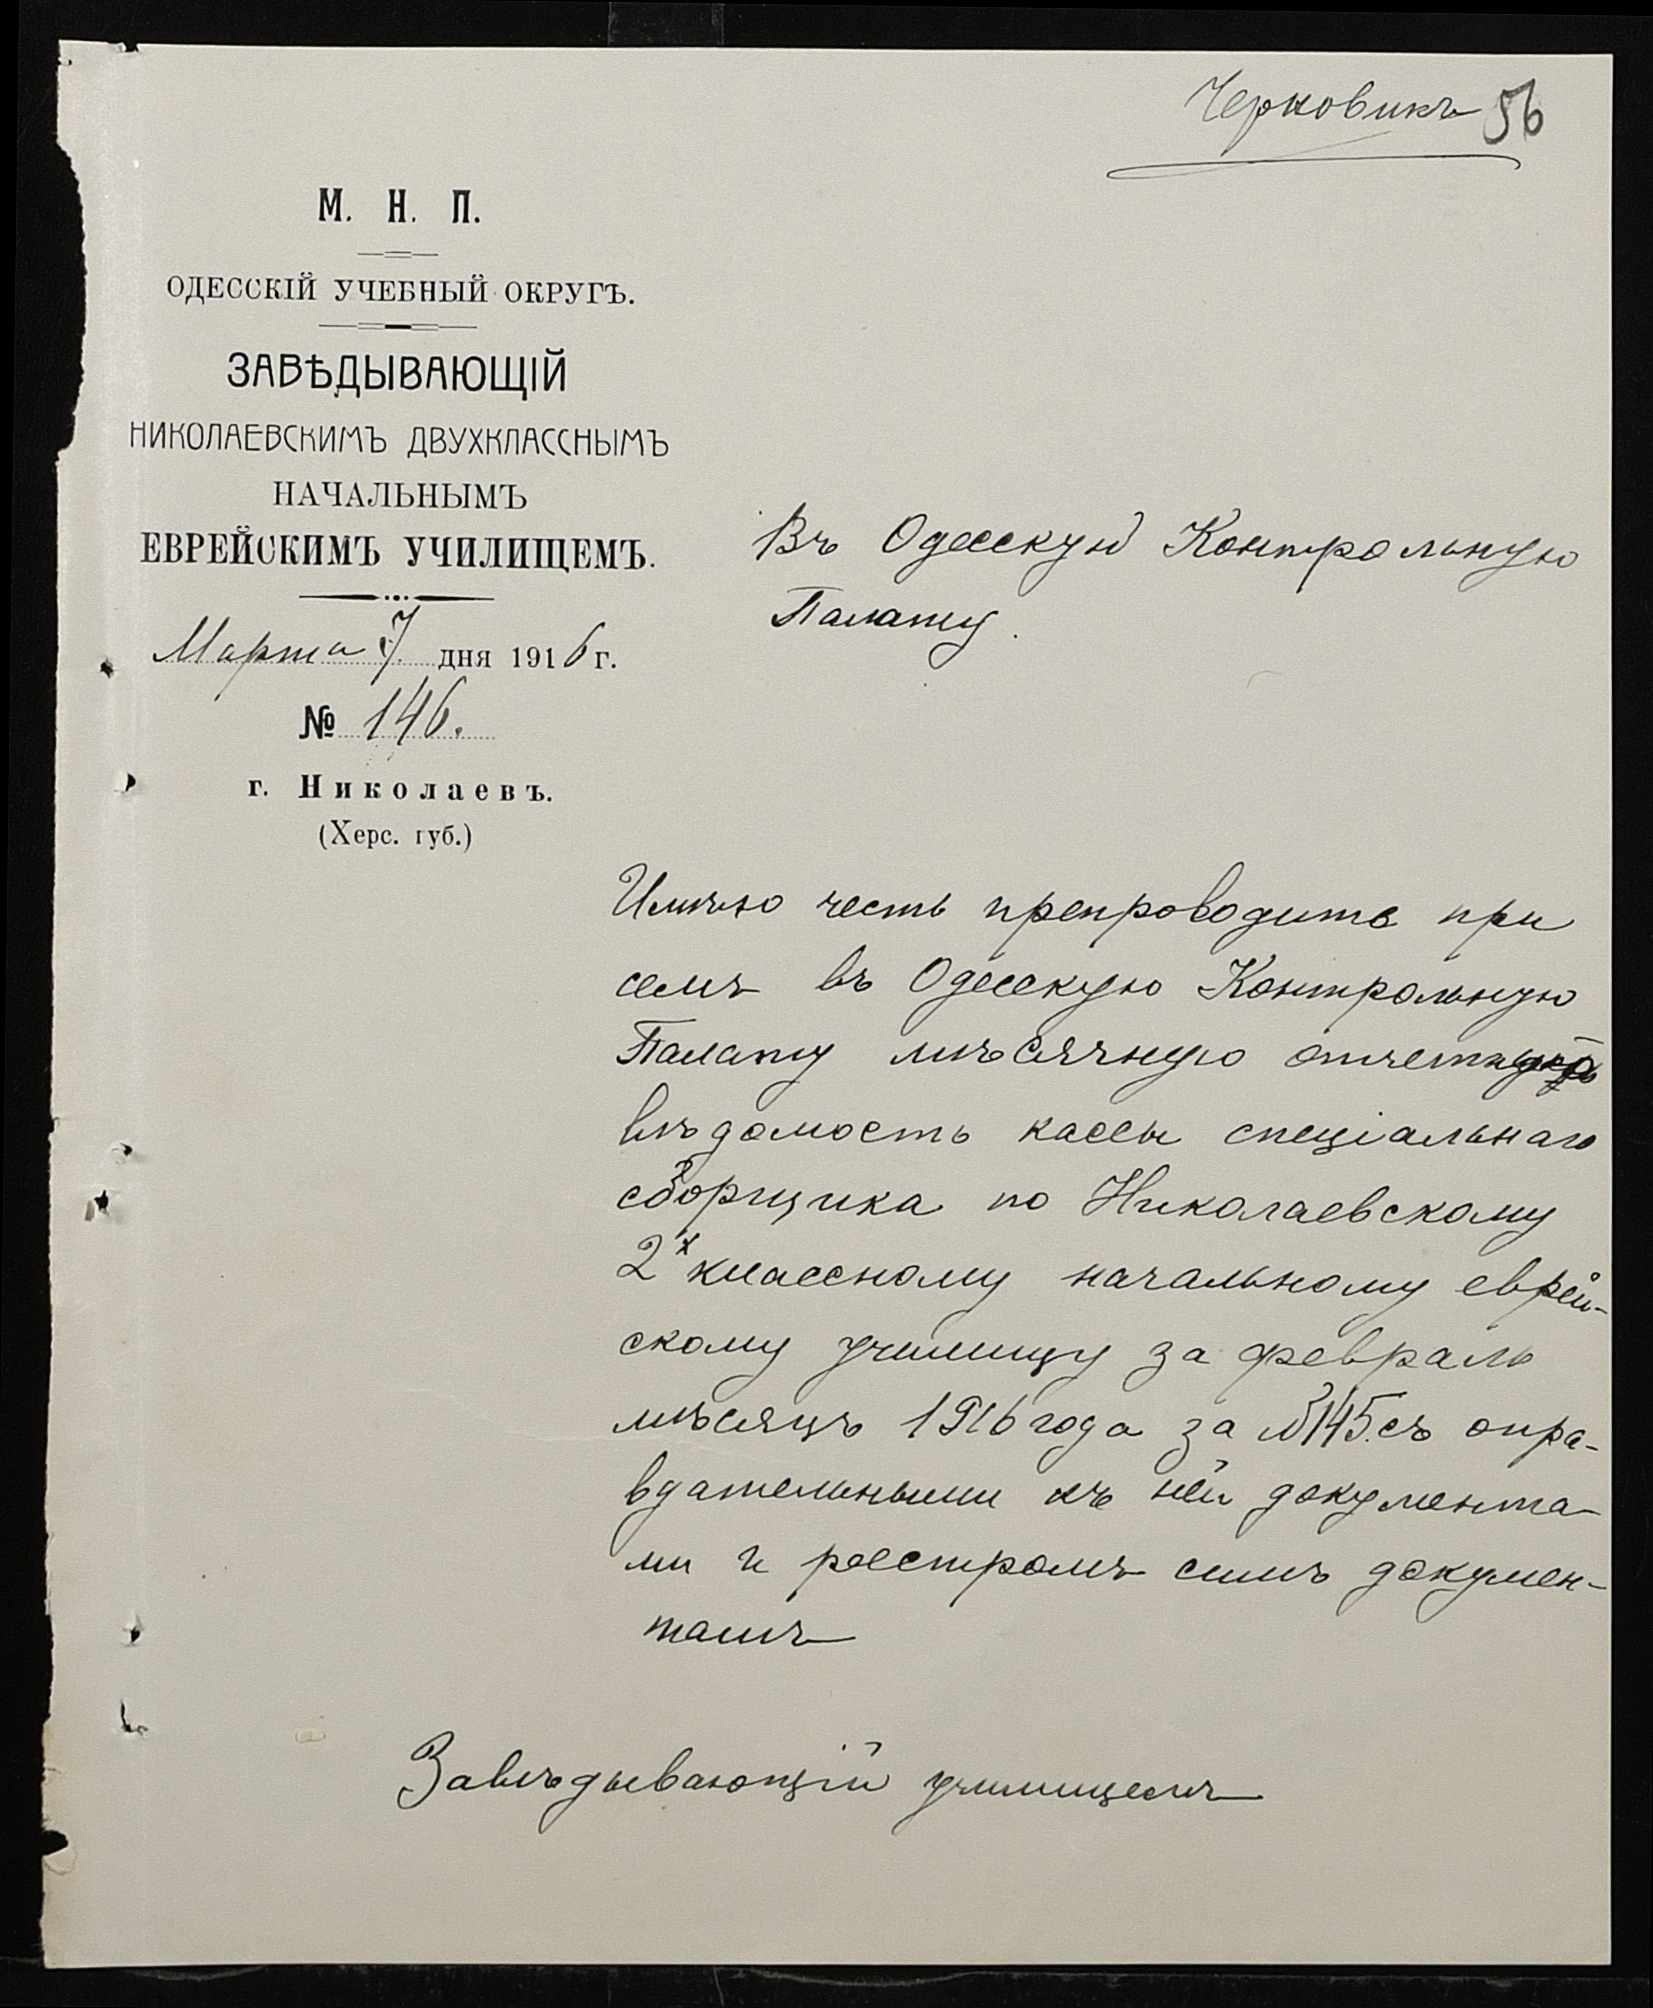 Черновикъ 56
М. Н. П.
ОДЕССКІЙ УЧЕБНЫЙ ОКРУГЪ.
ЗАВѢДЫВАЮЩІЙ
НИКОЛАЕВСКИМЪ ДВУХКЛАССНЫМЪ
НАЧАЛЬНЫМЪ
ЕВРЕЙСКИМЪ УЧИЛИЩЕМЪ.
Марта 7 дня 1916 г.
№ 146.
г. Николаевъ.
(Херс. губ.)
Въ Одесскую Контрольную
Палату.
Имѣю честь препроводить при
семъ въ Одесскую Контрольную
Палату мѣсячную отчетную
вѣдомость кассы спеціальнаго
сборщика по Николаевскому
2х классному начальному еврей-
скому училищу за февраль
мѣсяцъ 1916 года за №145. съ опра-
вдательными къ ней документа-
ми и реестромъ симъ докумен-
тамъ
Завѣдывающій училищемъ